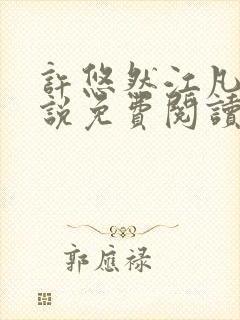 許悠然江凡
說免費閱讀
郭應祿